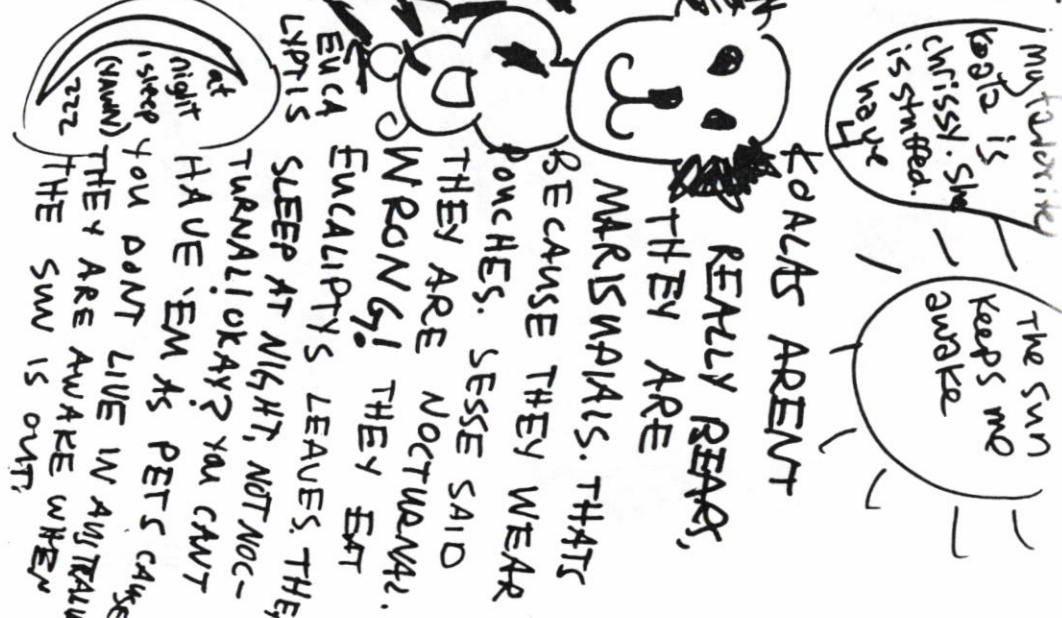 my favorite
Koala is
chrissy. She
is stuffed.
i have 4
The Sun
keeps me
awake
KOALAS ARENT
REALLY BEARS,
THEY ARE
THATS
BECAUSE THEY WEAR
POUCHES. SESSE SAID
THEY ARE NOCTURNAL.
WRONG! THEY EAT
EUCALIPTYS LEAVES. THEY
SLEEP AT NIGHT, NOT NOC-
TURNAL! OKAY? YOU CANT
HAVE 'EM AS PETS CAUSE
YOU DONT LIVE IN
THEY ARE AWAKE WHEN
THE SUN IS OUT.
EUCA
LYPTIS
at
night
i sleep
(YAWN)
ZZZ